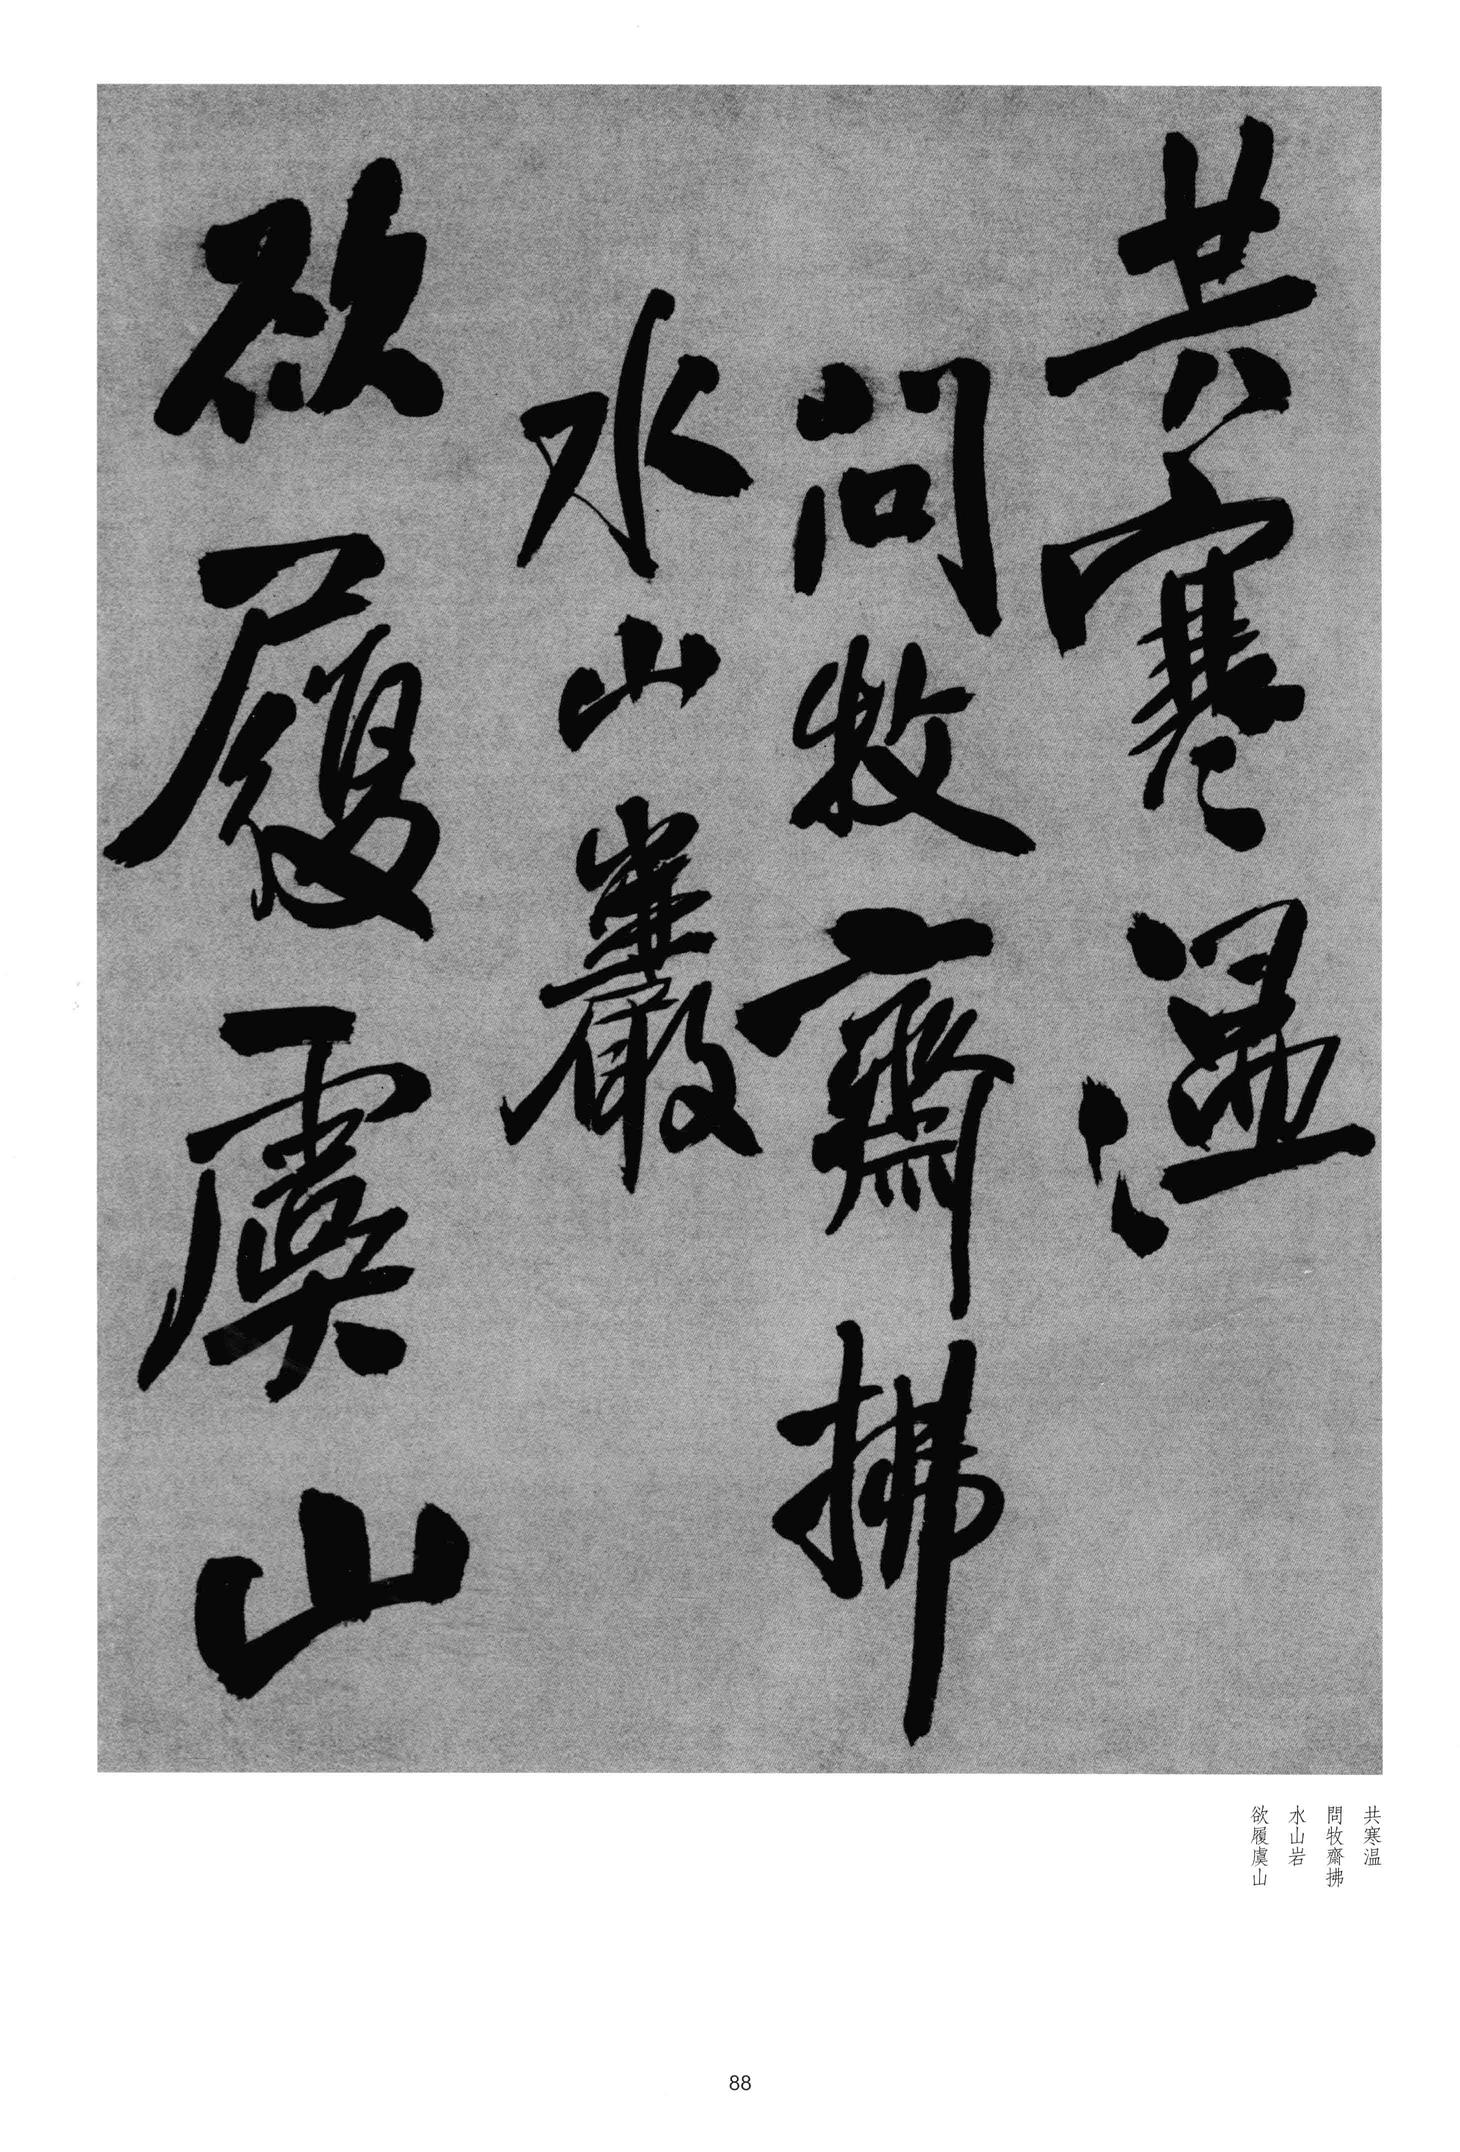 共寒温
問牧齋拂
水山巖
欲履虞山
共寒温
問牧齋拂
水山岩
欲履虞山
88